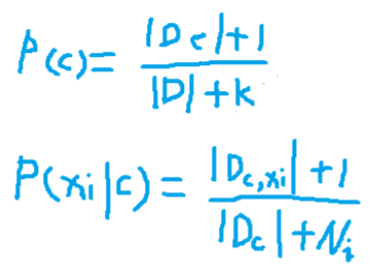 P(c) = |Dc|+1 / |D|+k
P(xi|c) = |Dc,xi|+1 / |Dc|+Ni